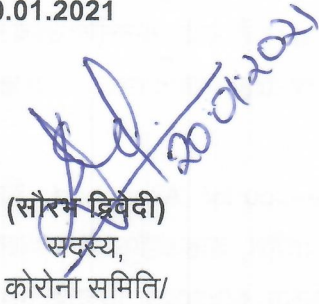 0.01.2021
20.01.2021
(सौरभ द्विवेदी)
सदस्य,
कोरोना समिति/